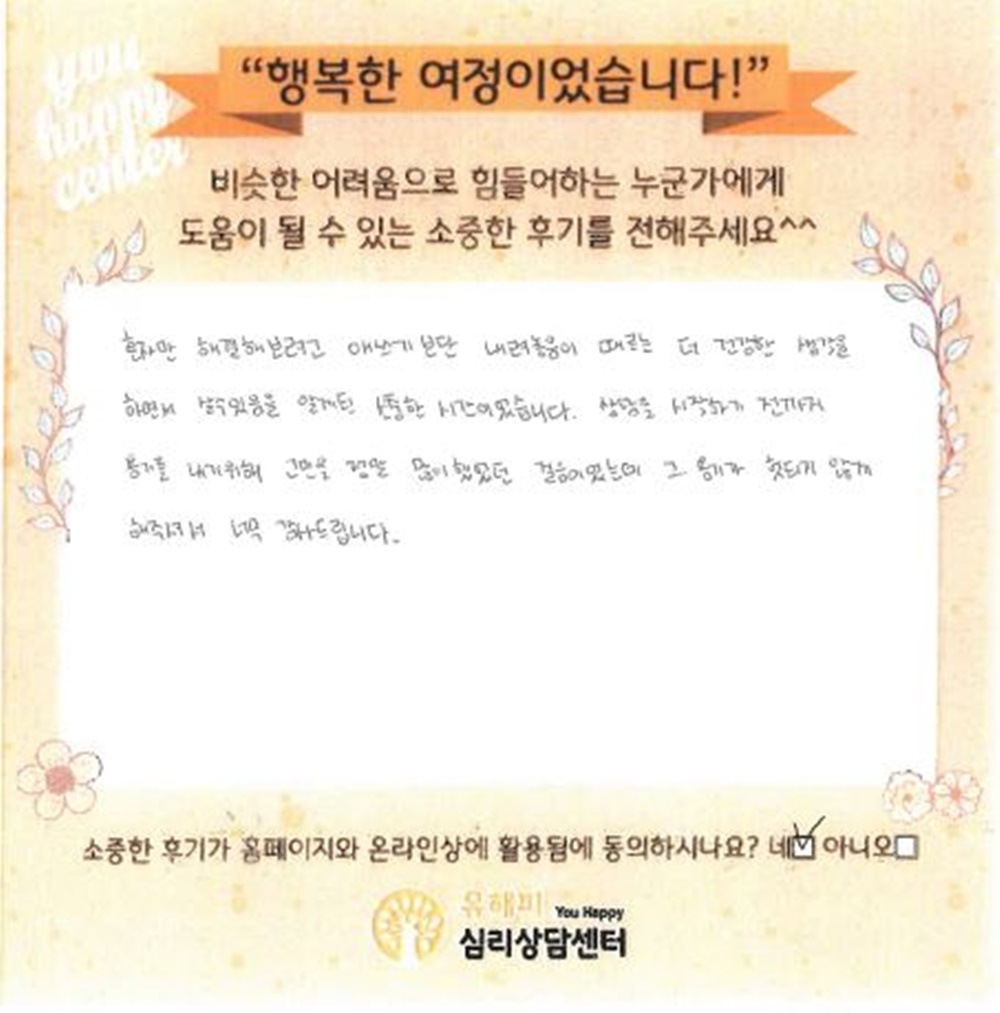 you
happy
center
“행복한 여정이었습니다!”
비슷한 어려움으로 힘들어하는 누군가에게
도움이 될 수 있는 소중한 후기를 전해주세요^^
혼자만 해결해보려고 애쓰기 보단 내려놓음이 때로는 더 건강한 생각을
하면서 살수있음을 알게된 소중한 시간이었습니다. 상담을 시작하기 전까지
용기를 내기위해 고민을 정말 많이했었던 걸음이었는데 그 용기가 헛되지 않게
해주셔서 너무 감사드립니다.
소중한 후기가 홈페이지와 온라인상에 활용됨에 동의하시나요? 네☑ 아니오☐
유해피 You Happy
심리상담센터